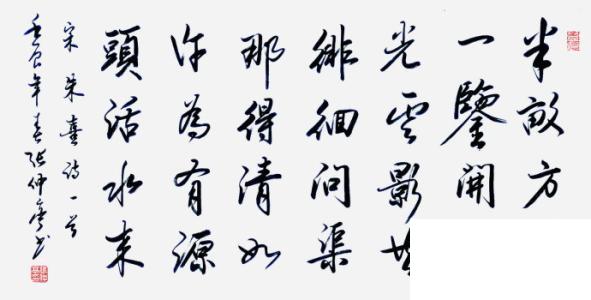 半畝方
一鑒開
光雲影共
徘徊問渠
那得清如
許為有源
頭活水来
宋朱熹诗一首
壬寅年春張仲亭书